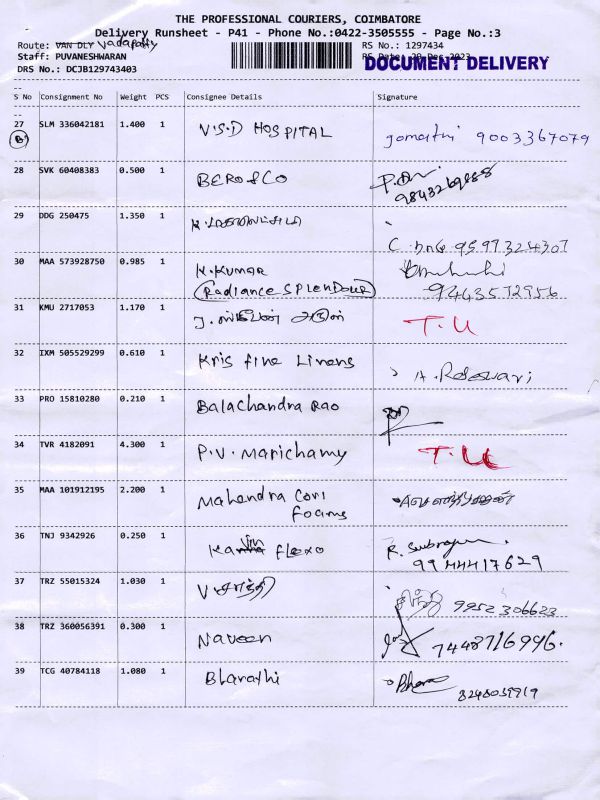 THE PROFESSIONAL COURIERS, COIMBATORE
Delivery Runsheet - P41 - Phone No.:0422-3505555 - Page No.:3
Route: VAN DLY Vadapatty
RS No.: 1297434
Staff: PUVANESHWARAN
DRS No.: DCJB129743403
DOCUMENT DELIVERY
S No Consignment No Weight PCS Consignee Details Signature
27 SLM 336042181 1.400 1 V.S.D HOSPITAL gomathi 9003367079
28 SVK 60408383 0.500 1 BERO & CO
29 DDG 250475 1.350 1
30 MAA 573928750 0.985 1 K.KUMAR
(Radiance SPLENDOUR) 9443572956
31 KMU 2717053 1.170 1 T.U
32 IXM 505529299 0.610 1 Kris fine Linens
33 PRO 15810280 0.210 1 Balachandra Rao
34 TVR 4182091 4.300 1 P.V. Marichamy T.U
35 MAA 101912195 2.200 1 Mahendra Cori
Foams
36 TNJ 9342926 0.250 1 flexo
9944417629
37 TRZ 55015324 1.030 1 9952306623
38 TRZ 360056391 0.300 1 Naveen 7448716996.
39 TCG 40784118 1.080 1 Bharathi